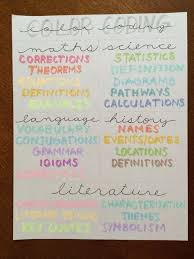 color coding
maths
CORRECTIONS
THEOREMS
EQUATIONS
DEFINITIONS
EXAMPLES
science
STATISTICS
DEFINITION
DIAGRAMS
PATHWAYS
CALCULATIONS
language
VOCABULARY
CONJUGATIONS
GRAMMAR
IDIOMS
history
NAMES
EVENTS/DATES
LOCATIONS
DEFINITIONS
literature
KEY QUOTES
THEMES
SYMBOLISM